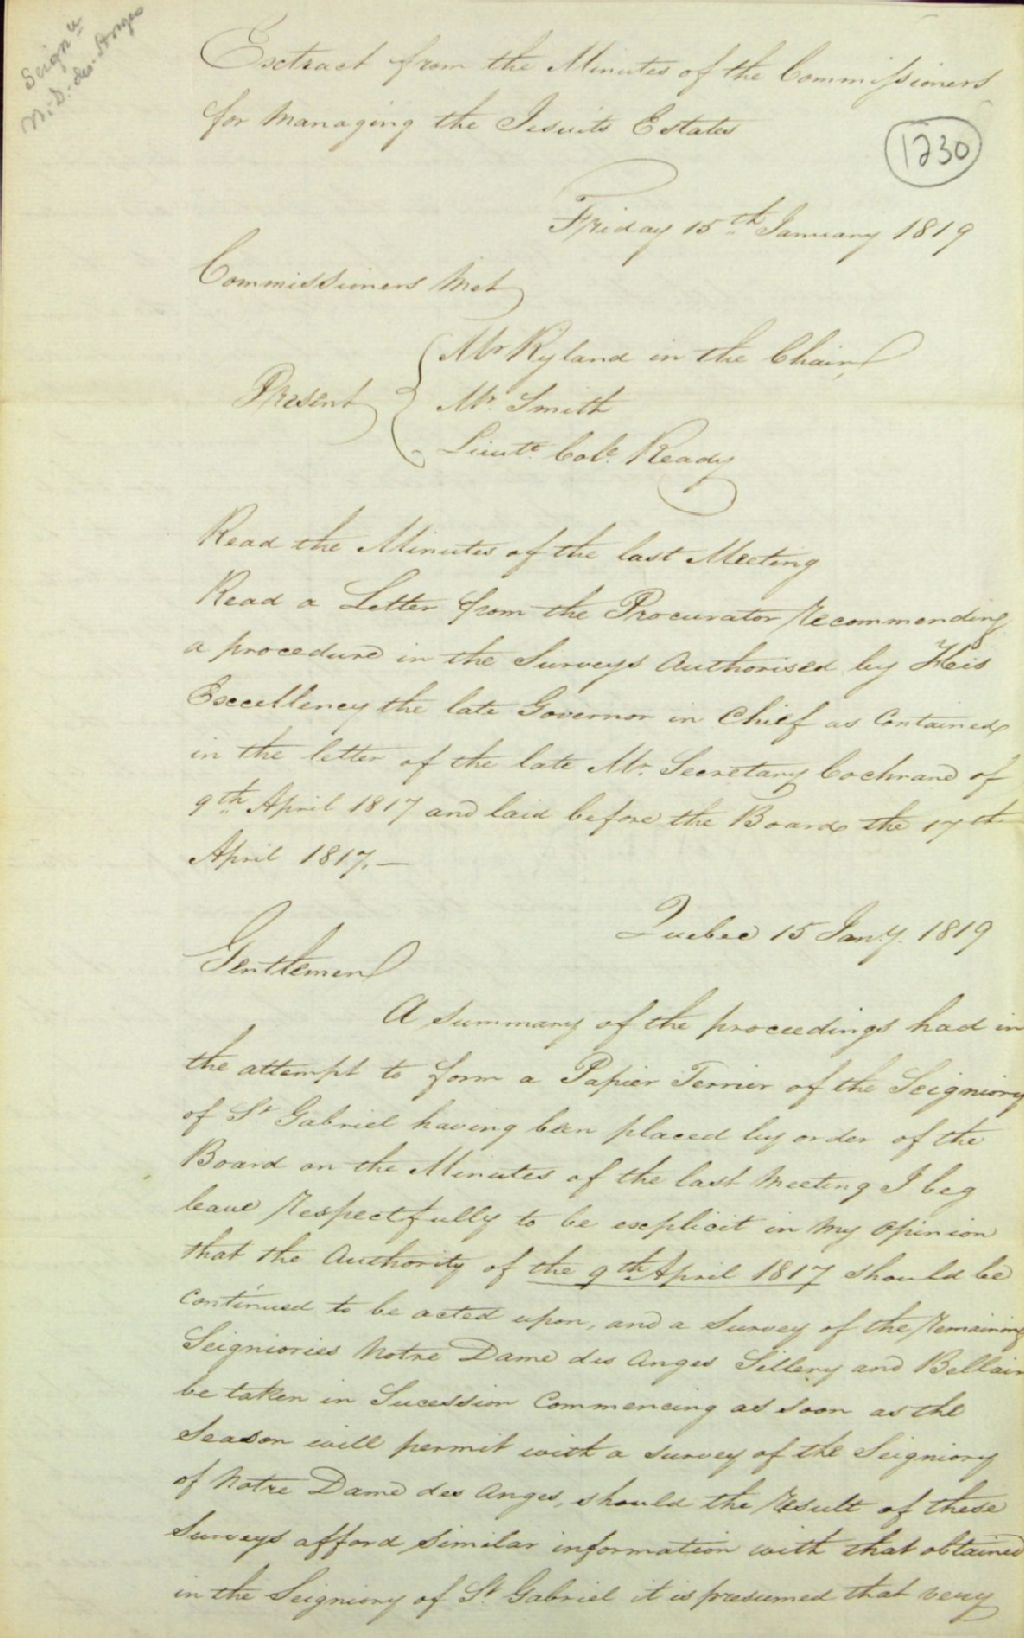 Seign.ie
N.D. des Anges
Exctract from the Minutes of the Commissioners
for Managing the Jesuits Estates
1230
Friday 15th January 1819
Commissioners Met
Mr Ryland in the Chair
Present
Mr. Smith
Lieut. Col. Ready
Read the Minutes of the last Meeting
Read a Letter from the Procurator Recommending
a procedure in the Surveys Authorised by His
Exccellency the late Governor in Chief as Contained
in the letter of the late Mr. Secretary Cochrane of
9th April 1817 and laid before the Board the 17th
April 1817.—
Quebec 15 Jany. 1819
Gentlemen
A Summary of the proceedings had in
the attempt to form a Papier Terrier of the Seigniory
of St Gabriel having been placed by order of the
Board on the Minutes of the last Meeting I beg
leave Respectfully to be explicit in My Opinion
that the Authority of the 9th April 1817 should be
Continued to be acted upon, and a Survey of the Remaining
Seigniories Notre Dame des Anges Sillery and Bellair
be taken in Sucession Commencing as soon as the
Season will permit with a survey of the Seigniory
of Notre Dame des Anges, should the Result of these
Surveys afford Similar information with that obtained
in the Seigniory of St. Gabriel it is presumed that very